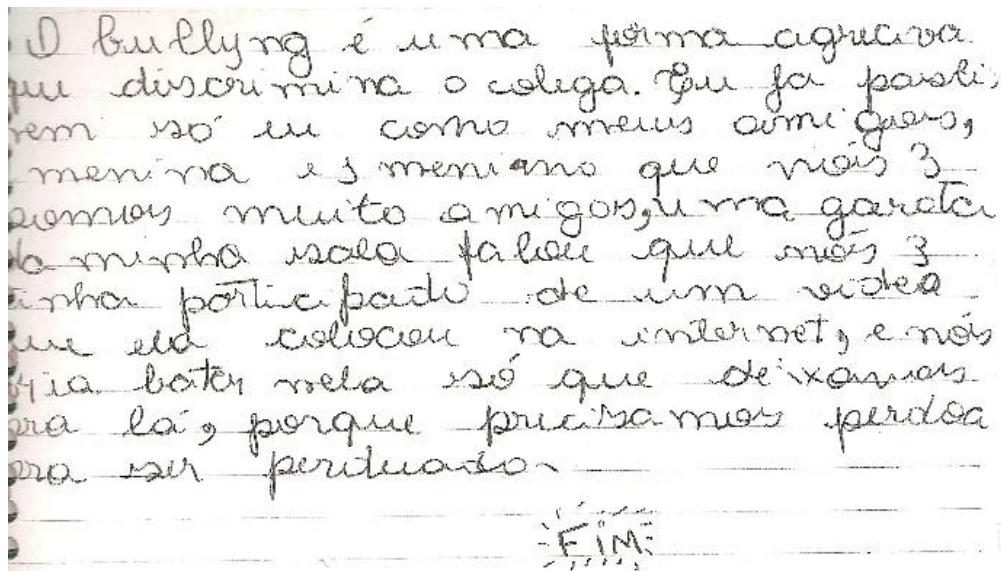 O bullyng é uma forma agreciva
que discrimina o colega. Eu ja passei,
nem só eu como meus amigos,
menina e menino que nóis 3
somos muito amigos, uma garota
da minha sala falou que nóis 3
tinha participado de um video
que ela colocou na internet, e nós
ia bater nela só que deixamos
pra lá, porque precisamos perdoa
pra ser perduado.
FIM